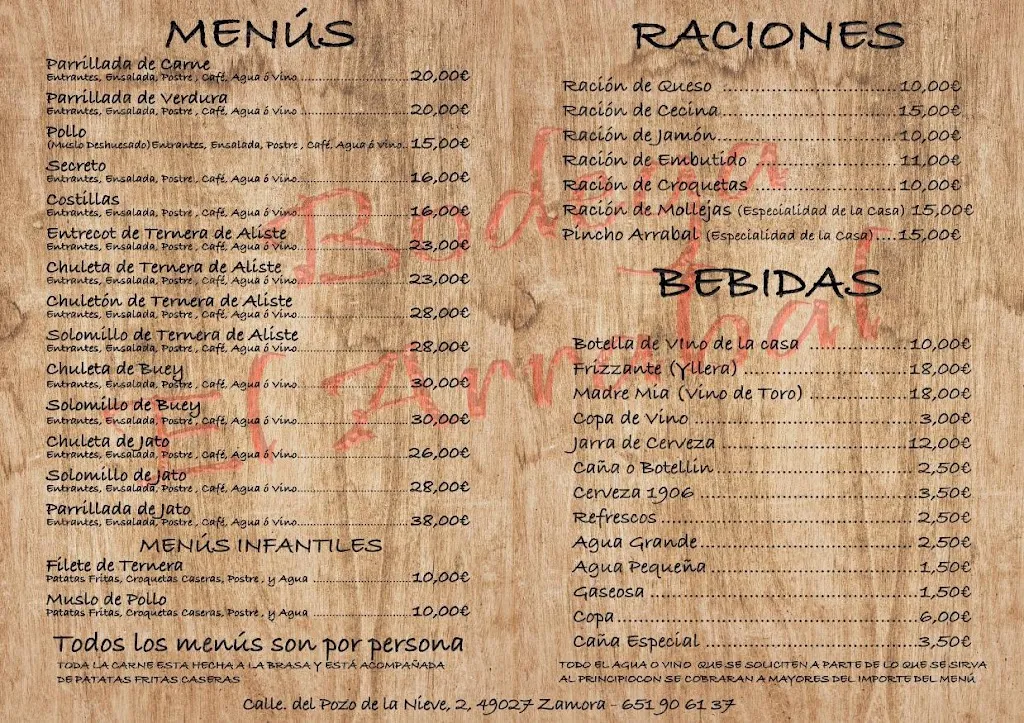 MENÚS
Parrillada de Carne
Entrantes, Ensalada, Postre , Café, Agua ó vino 20,00€
Parrillada de Verdura
Entrantes, Ensalada, Postre , Café, Agua ó vino 20,00€
Pollo
(Muslo Deshuesado)Entrantes, Ensalada, Postre , Café, Agua ó vino 15,00€
Secreto
Entrantes, Ensalada, Postre , Café, Agua ó vino 16,00€
Costillas
Entrantes, Ensalada, Postre , Café, Agua ó vino 16,00€
Entrecot de Ternera de Aliste
Entrantes, Ensalada, Postre , Café, Agua ó vino 23,00€
Chuleta de Ternera de Aliste
Entrantes, Ensalada, Postre , Café, Agua ó vino 23,00€
Chuletón de Ternera de Aliste
Entrantes, Ensalada, Postre , Café, Agua ó vino 28,00€
Solomillo de Ternera de Aliste
Entrantes, Ensalada, Postre , Café, Agua ó vino 28,00€
Chuleta de Buey
Entrantes, Ensalada, Postre , Café, Agua ó vino 30,00€
Solomillo de Buey
Entrantes, Ensalada, Postre , Café, Agua ó vino 30,00€
Chuleta de Jato
Entrantes, Ensalada, Postre , Café, Agua ó vino 26,00€
Solomillo de Jato
Entrantes, Ensalada, Postre , Café, Agua ó vino 28,00€
Parrillada de Jato
Entrantes, Ensalada, Postre , Café, Agua ó vino 38,00€
MENÚS INFANTILES
Filete de Ternera
Patatas Fritas, Croquetas Caseras, Postre , y Agua 10,00€
Muslo de Pollo
Patatas Fritas, Croquetas Caseras, Postre , y Agua 10,00€
Todos los menús son por persona
TODA LA CARNE ESTA HECHA A LA BRASA Y ESTÁ ACOMPAÑADA
DE PATATAS FRITAS CASERAS
RACIONES
Ración de Queso 10,00€
Ración de Cecina 15,00€
Ración de Jamón 10,00€
Ración de Embutido 11,00€
Ración de Croquetas 10,00€
Ración de Mollejas (Especialidad de la Casa) 15,00€
Pincho Arrabal (Especialidad de la Casa) 15,00€
BEBIDAS
Botella de VIno de la casa 10,00€
Frizzante (Yllera) 18,00€
Madre Mia (Vino de Toro) 18,00€
Copa de Vino 3,00€
Jarra de Cerveza 12,00€
Caña o Botellín 2,50€
Cerveza 1906 3,50€
Refrescos 2,50€
Agua Grande 2,50€
Agua Pequeña 1,50€
Gaseosa 1,50€
Copa 6,00€
Caña Especial 3,50€
TODO EL AGUA O VINO QUE SE SOLICITEN A PARTE DE LO QUE SE SIRVA
AL PRINCIPIOCON SE COBRARAN A MAYORES DEL IMPORTE DEL MENÚ
Bodega
El Arrabal
Calle. del Pozo de la Nieve, 2, 49027 Zamora - 651 90 61 37